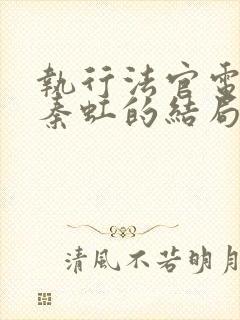 執行法官電
秦虹的結局
清風不若明月